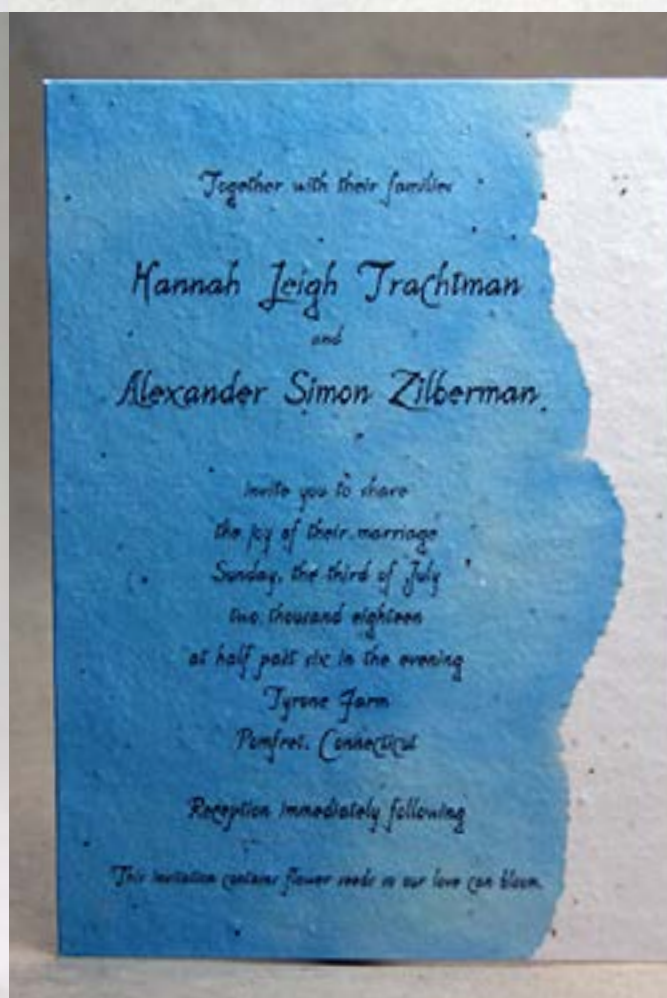 Together with their families
Hannah Leigh Trachtman
and
Alexander Simon Zilberman
invite you to share
the joy of their marriage
Sunday, the third of July
two thousand eighteen
at half past six in the evening
Tyrone Farm
Pomfret, Connecticut
Reception immediately following
This invitation contains flower seeds so our love can bloom.